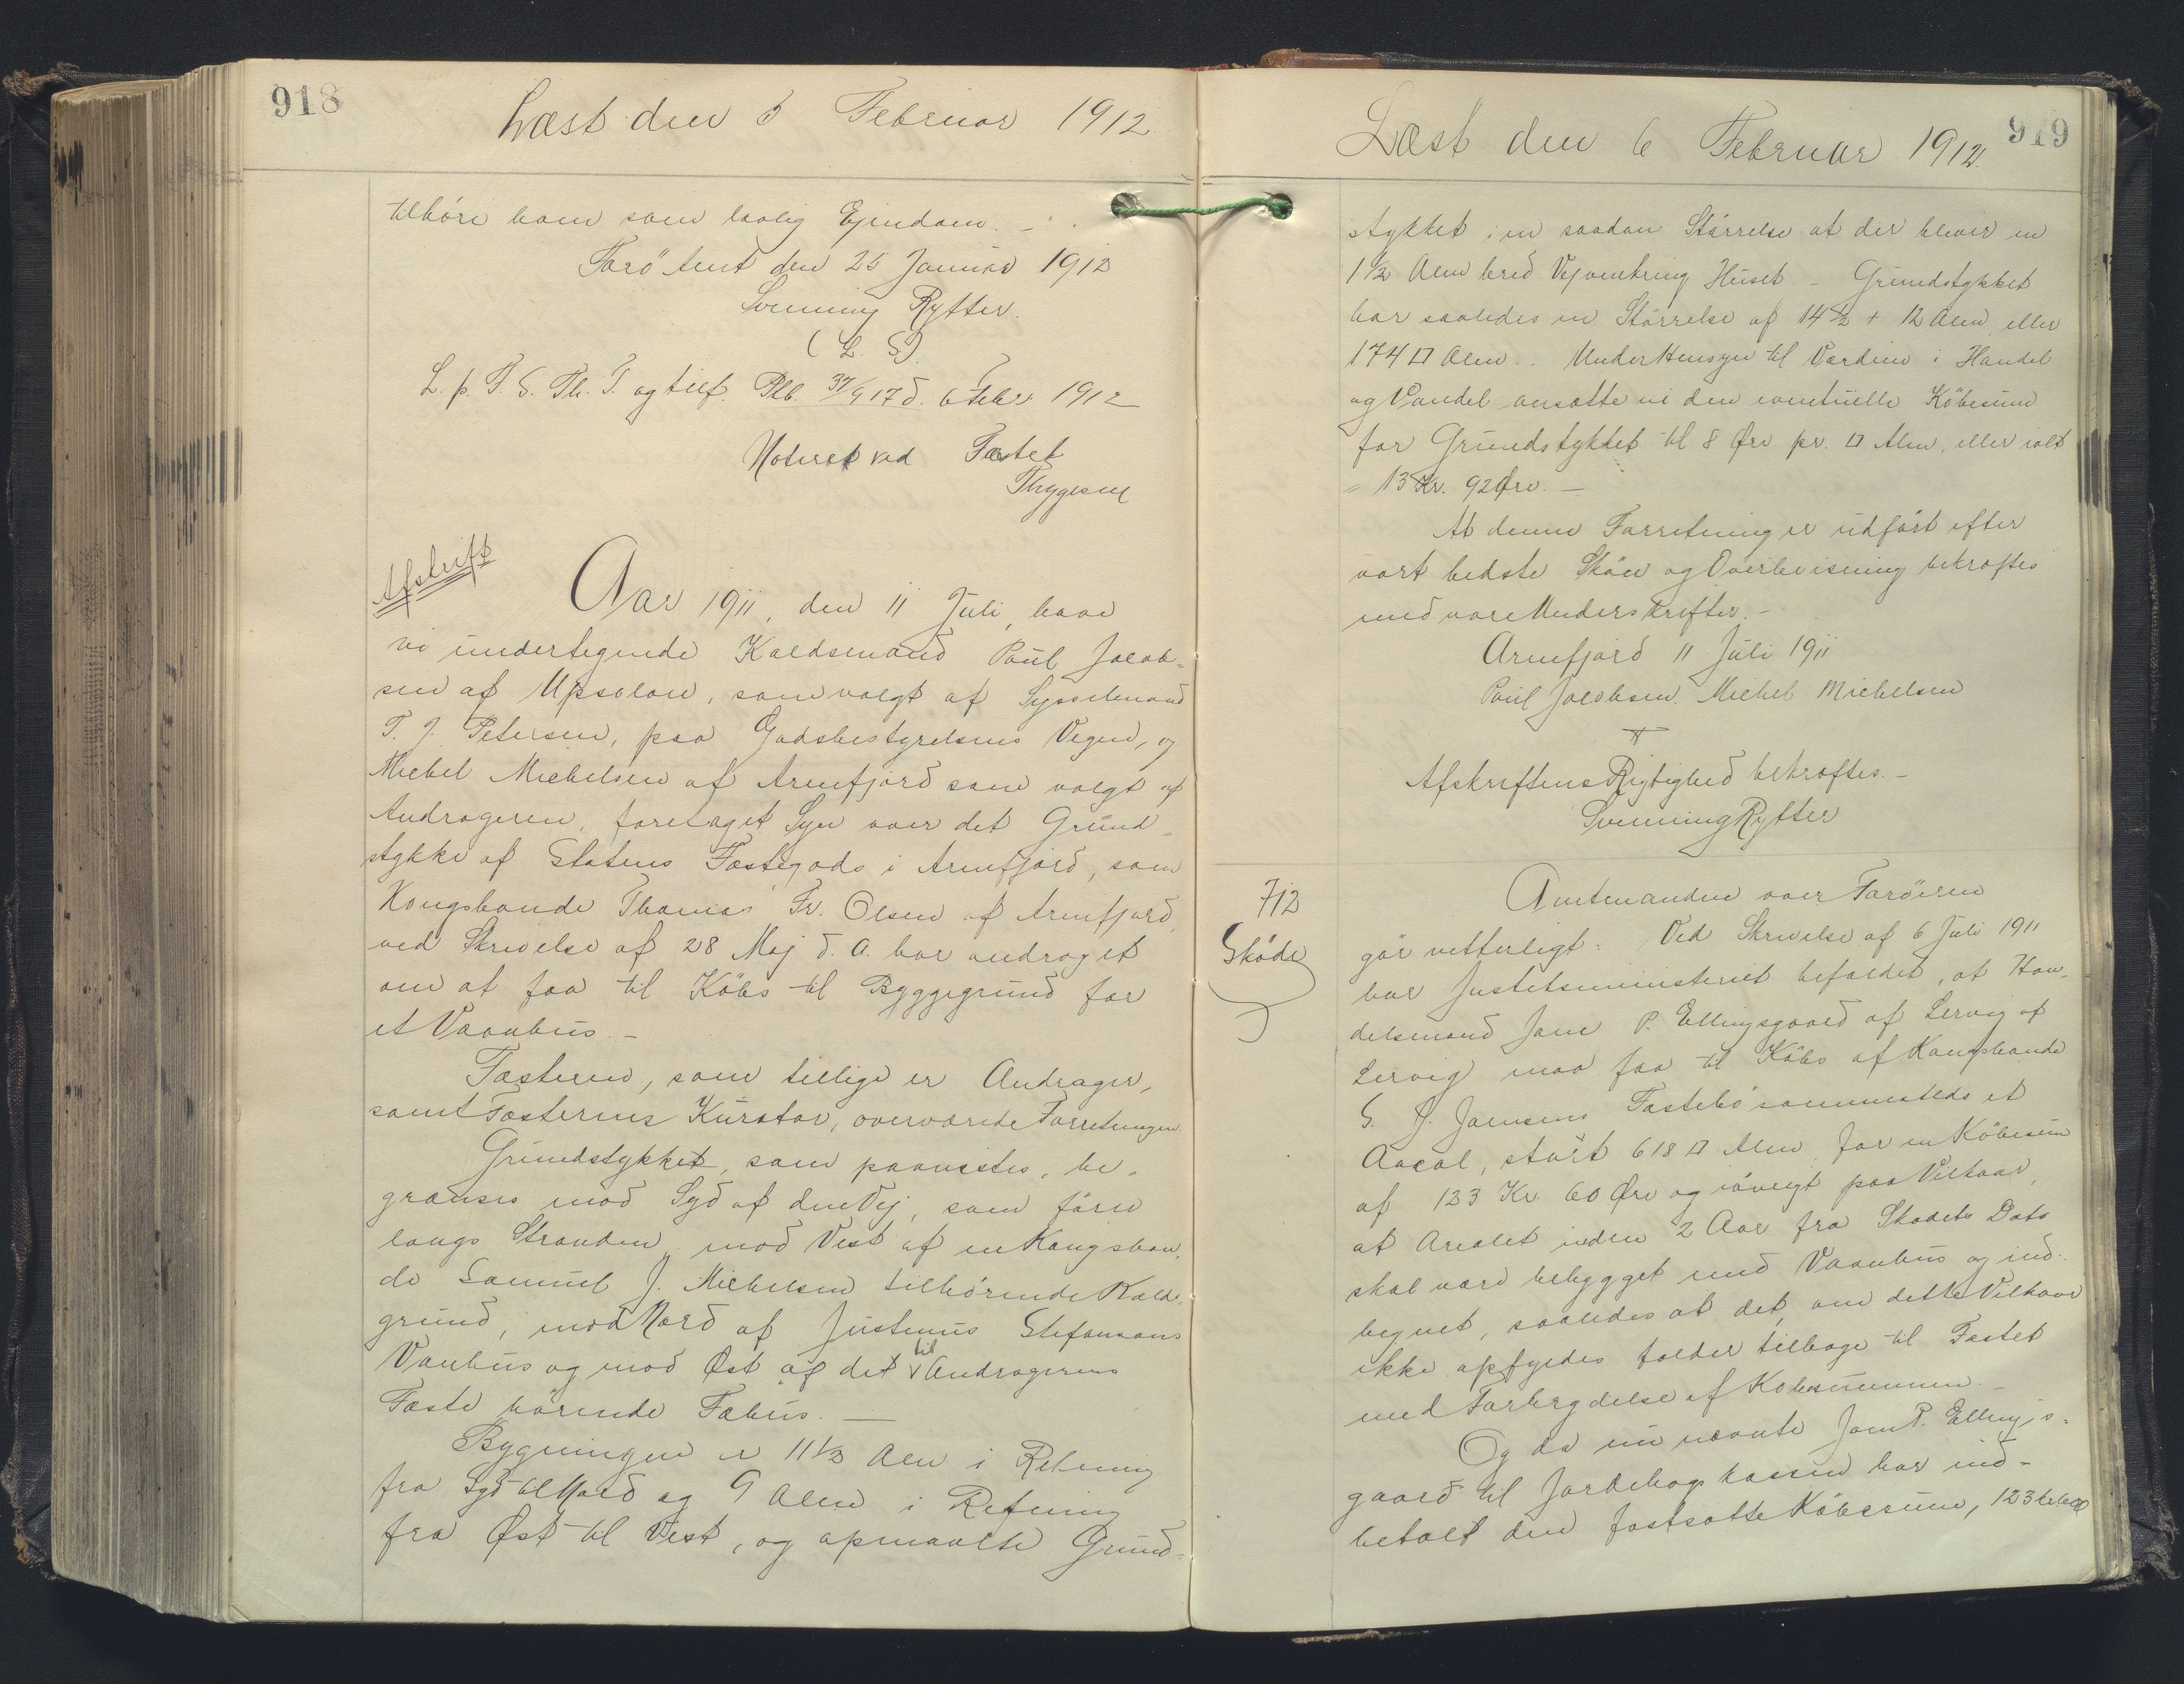 918
Læst den 6 Februar 1912
tilhöre ham som lovlig Ejendom. –
Færö Amt den 25 Januar 1912
Svenning Rytter.
(L. S.)
L. p. F. S. Th. T. og tilf. Plb. 37/917 d. 6 Febr 1912
Noteret ved Fæstet
Thygesen
Afskrift
Aar 1911, den 11 Juli, have
vi undertegnede Kaldsmand Poul Jacob-
sen af Upsolen, som valgt af Sysselmand
T. J. Petersen, paa Godsbestyrelsens Vegne, og
Michel Michelsen af Arnefjord som valgt af
Andrageren, foretaget Syn over det Grund-
stykke af Statens Fæstegods i Arnefjord, som
Kongsbonde Thomas Fr. Olsen af Arnefjord,
ved Skrivelse af 28 Maj d. A. har andraget
om at faa til Købs til Byggegrund for
et Vaanhus. –
Fæsteren, som tillige er Andrager,
samt Fæsterens Kurator, overværede Forretningen.
Grundstykket, som paavistes, be-
grænses mod Syd af den Vej, som förer
langs Stranden, mod Vest af en Kongsbon-
de Samuel J. Michelsen tilhörende Kæld-
grund, mod Nord af Justinus Stefansens
Vaanhus og mod Øst af det til Andragerens
Fæste hörende Fæhus. –
Bygningen er 11 1/2 Alen i Retning
fra Syd til Nord og 9 Alen i Retning
fra Øst til Vest, og opmaalte Grund-
919
Læst den 6 Februar 1912.
stykket i en saadan Störrelse at der bliver en
1 1/2 Alen bred Vej omkring Huset. – Grundstykket
har saaledes en Störrelse af 14 1/2 + 12 Alen eller
174 □ Alen. . Under Hensyn til Værdien i Handel
og Vandel ansætte vi den eventuelle Köbesum
for Grundstykket til 8 Øre pr. □ Alen, eller ialt
= 13 Kr. 92 Øre. –
At denne Forretning er udfört efter
vort bedste Skön og Overbevisning bekræftes
med vore Underskrifter. –
Arnefjord 11 Juli 1911
Poul Jacobsen. Michel Michelsen
Afskriftens Rigtighed bekræftes. –
Svenning Rytter
712
Sköde
Amtmanden over Færöerne
gör vitterligt: Ved Skrivelse af 6 Juli 1911
har Justitsministeriet bifaldet, at Han-
delsmand Jam P. Ellingsgaard af Lervig af
Lervig maa faa til Købs af Kongsbonde
S. J. Joensens Fæstebö sammesteds et
Areal, stort 618 □ Alen for en Köbesum
af 123 Kr 60 Øre og iövrigt paa Vilkaar,
at Arealet inden 2 Aar fra Sködets Dato
skal være bebygget med Vaanhus og ind-
hegnet, saaledes at det, om dette Vilkaar
ikke opfyldes falder tilbage til Fæstet
med Fortrydelse af Köbesummen. –
Og da nu nævnte Jam P. Ellings-
gaard til Jordebogskassen har ind-
betalt den fastsatte Köbesum, 123 Kr 60 Ø